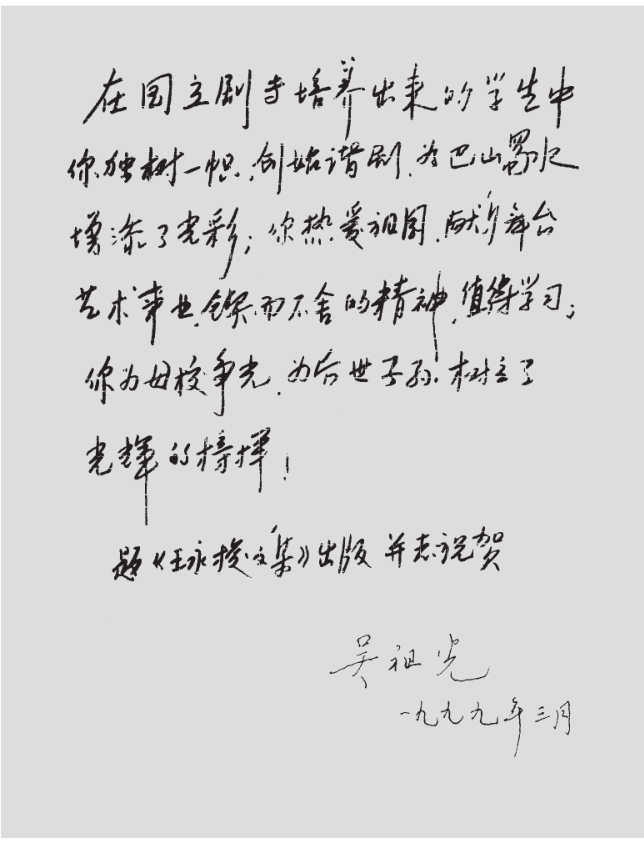 在国立剧专培养出来的学生中
你独树一帜，创始谐剧，为巴山蜀水
增添了光彩；你热爱祖国，献身舞台
艺术事业，锲而不舍的精神，值得学习；
你为母校争光，为后世子孙树立了
光辉的榜样！
题《王永梭文集》出版 并志祝贺
吴祖光
一九九九年三月